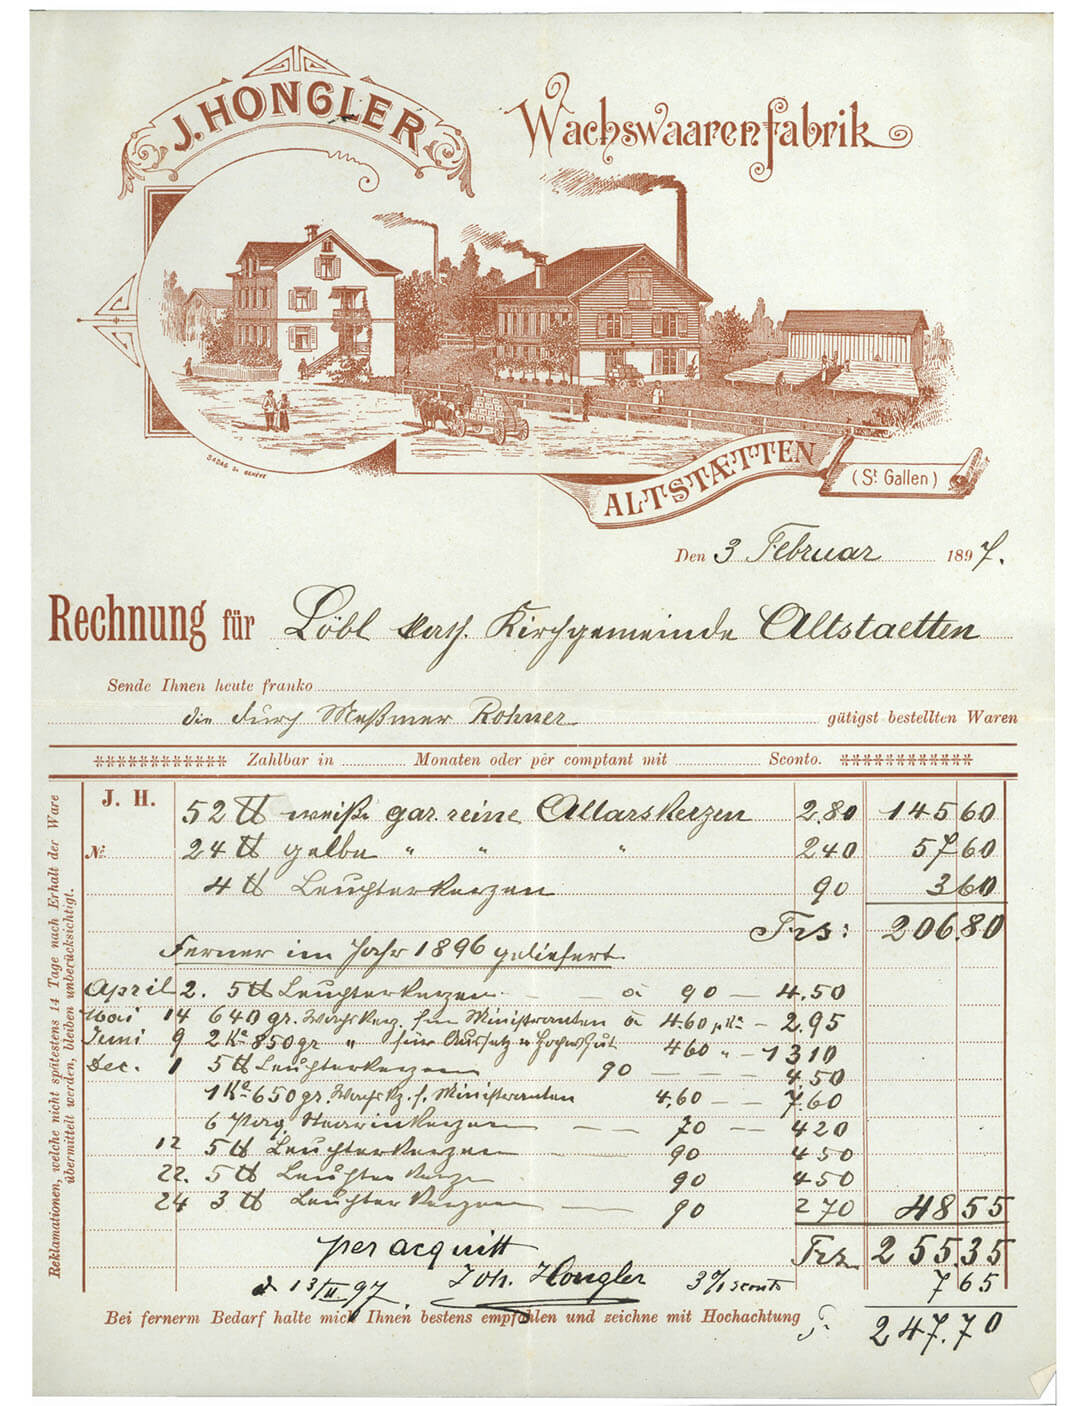 J. HONGLER
Wachswaarenfabrik
SADAG SA GENÈVE
ALTSTÆTTEN
(St. Gallen)
Den 3 Februar 1897.
Rechnung für Löbl. kath. Kirchgemeinde Altstaetten
Sende Ihnen heute franko
die durch Meßmer Rohner gütigst bestellten Waren
Zahlbar in Monaten oder pèr comptant mit Sconto.
Reklamationen, welche nicht spätestens 14 Tage nach Erhalt der Ware
übermittelt werden, bleiben unberücksichtigt.
J. H. 52 ℔ weiße gar. reine Altarskerzen 2.80 145 60
№ 24 ℔ gelbe " " " 240 57 60
4 ℔ Leuchterkerzen 90 3 60
Frs: 206.80
Ferner im Jahr 1896 geliefert.
April 2. 5 ℔ Leuchterkerzen à 90 — 4.50
Mai 14 640 gr. Wachskerz. für Ministranten à 4.60 p Ko - 2.95
Juni 9 2 Ko 850 gr " für Aussetz u 460 " - 1310
Dec. 1 5 ℔ Leuchterkerzen 90 — 4.50
1 Ko 650 gr. Wachskz. f. Ministranten 4,60 — 7.60
6 Paq. Stearinkerzen — 70 — 420
12 5 ℔ Leuchterkerzen — 90 450
22. 5 ℔ Leuchterkerzen 90 450
24 3 ℔ Leuchterkerzen — 90 270 48 55
per acquitt Frs. 255.35
d 13/II. 97 Joh. Hongler 3% sconto 7 65
Bei fernerm Bedarf halte mich Ihnen bestens empfohlen und zeichne mit Hochachtung
247.70